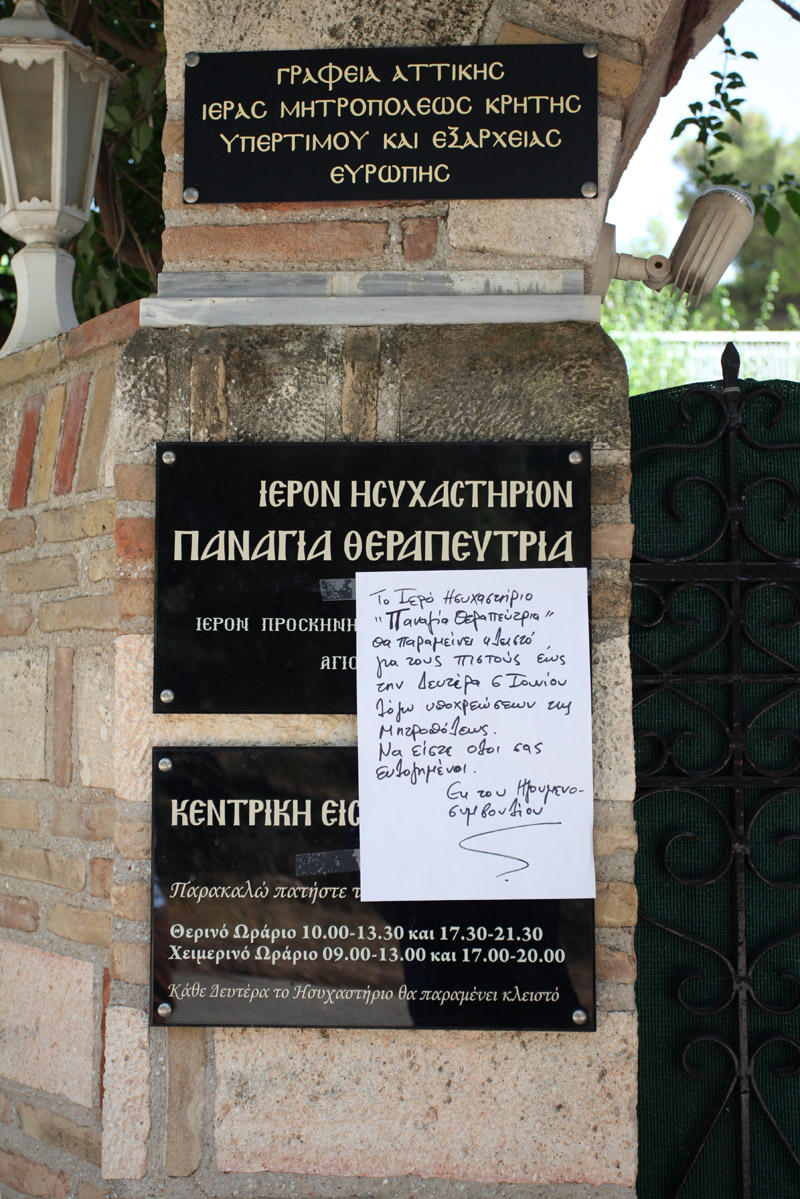 ΓΡΑΦΕΙΑ ΑΤΤΙΚΗΣ
ΙΕΡΑΣ ΜΗΤΡΟΠΟΛΕΩΣ ΚΡΗΤΗΣ
ΥΠΕΡΤΙΜΟΥ ΚΑΙ ΕΞΑΡΧΕΙΑΣ
ΕΥΡΩΠΗΣ
ΙΕΡΟΝ ΗΣΥΧΑΣΤΗΡΙΟΝ
ΠΑΝΑΓΙΑ ΘΕΡΑΠΕΥΤΡΙΑ
ΙΕΡΟΝ ΠΡΟΣΚΗΝΗ
ΑΓΙΟ
Το Ιερό Ησυχαστήριο
"Παναγία Θεραπεύτρια"
θα παραμείνει κλειστό
για τους πιστούς έως
την Δευτέρα 6 Ιουνίου
λόγω υποχρεώσεων της
Μητροπόλεως.
Να είστε όλοι σας
ευλογημένοι.
Εκ του Ηγουμενο-
συμβουλίου
ΚΕΝΤΡΙΚΗ ΕΙΣ
Παρακαλώ πατήστε τ
Θερινό Ωράριο 10.00-13.30 και 17.30-21.30
Χειμερινό Ωράριο 09.00-13.00 και 17.00-20.00
Κάθε Δευτέρα το Ησυχαστήριο θα παραμένει κλειστό